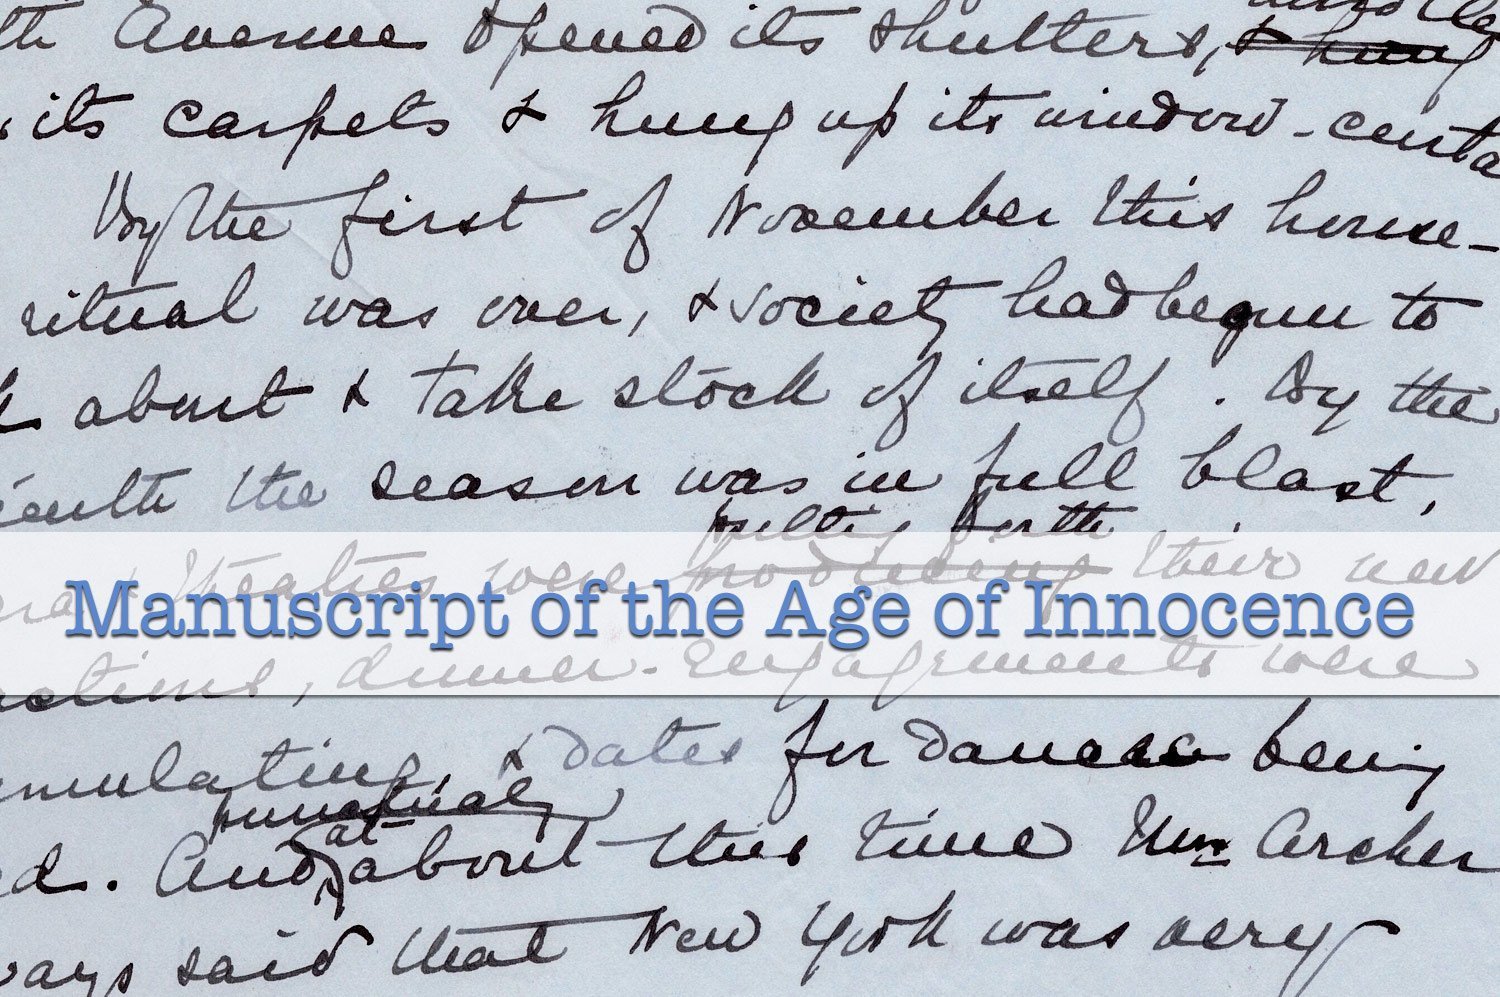 th Avenue opened its shutters, & hung
its carpets & hung up its window-curta
By the first of November this house-
ritual was over, & society had begun to
about & take stock of itself. By the
eenth the season was in full blast,
putting forth
theatres were producing their new
Manuscript of the Age of Innocence
actions, dinner-engagements were
mulating, & dates for dances being
punctually
at
d. And about this time Mrs Archer
ways said that New York was very